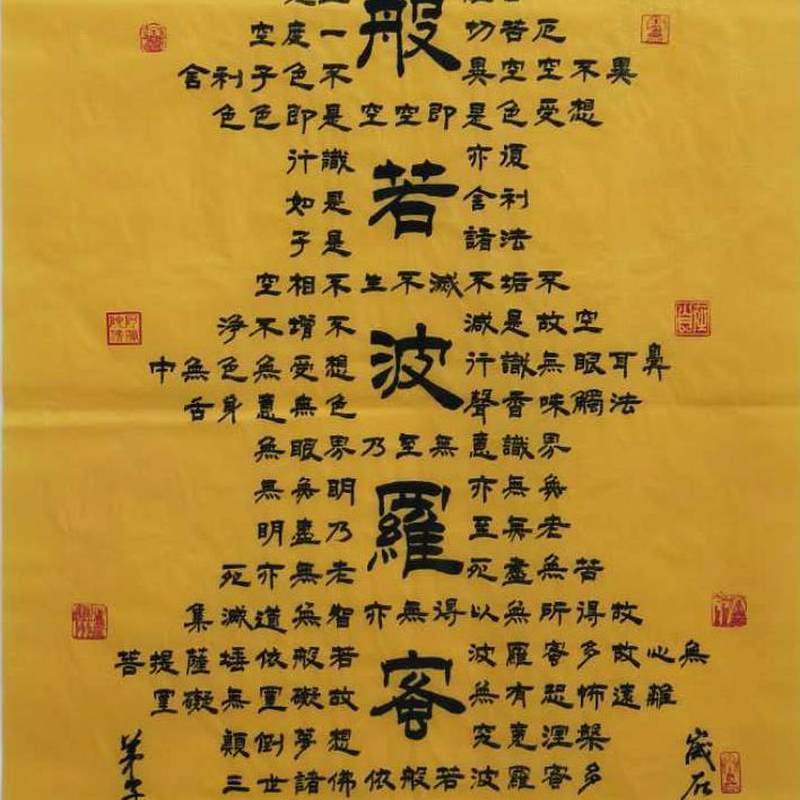 般
空度一 切苦厄
舍利子色不 異空空不異
色色即是空空即是色受想
行識 亦復
如是 若 舍利
子是 諸法
空相不生不滅不垢不
淨不增不 減是故空
中無色無受想 波 行識無眼耳鼻
舌身意無色 聲香味觸法
無眼界乃至無意識界
無無明 亦無無
明盡乃 羅 至無老
死亦無老 死盡無苦
集滅道無智亦無得以無所得故
菩提薩埵依般若 波羅密多故心無
罣礙無罣礙故 蜜 無有恐怖遠離
顛倒夢想 究竟涅槃
三世諸佛依般若波羅密多
弟子
歲在